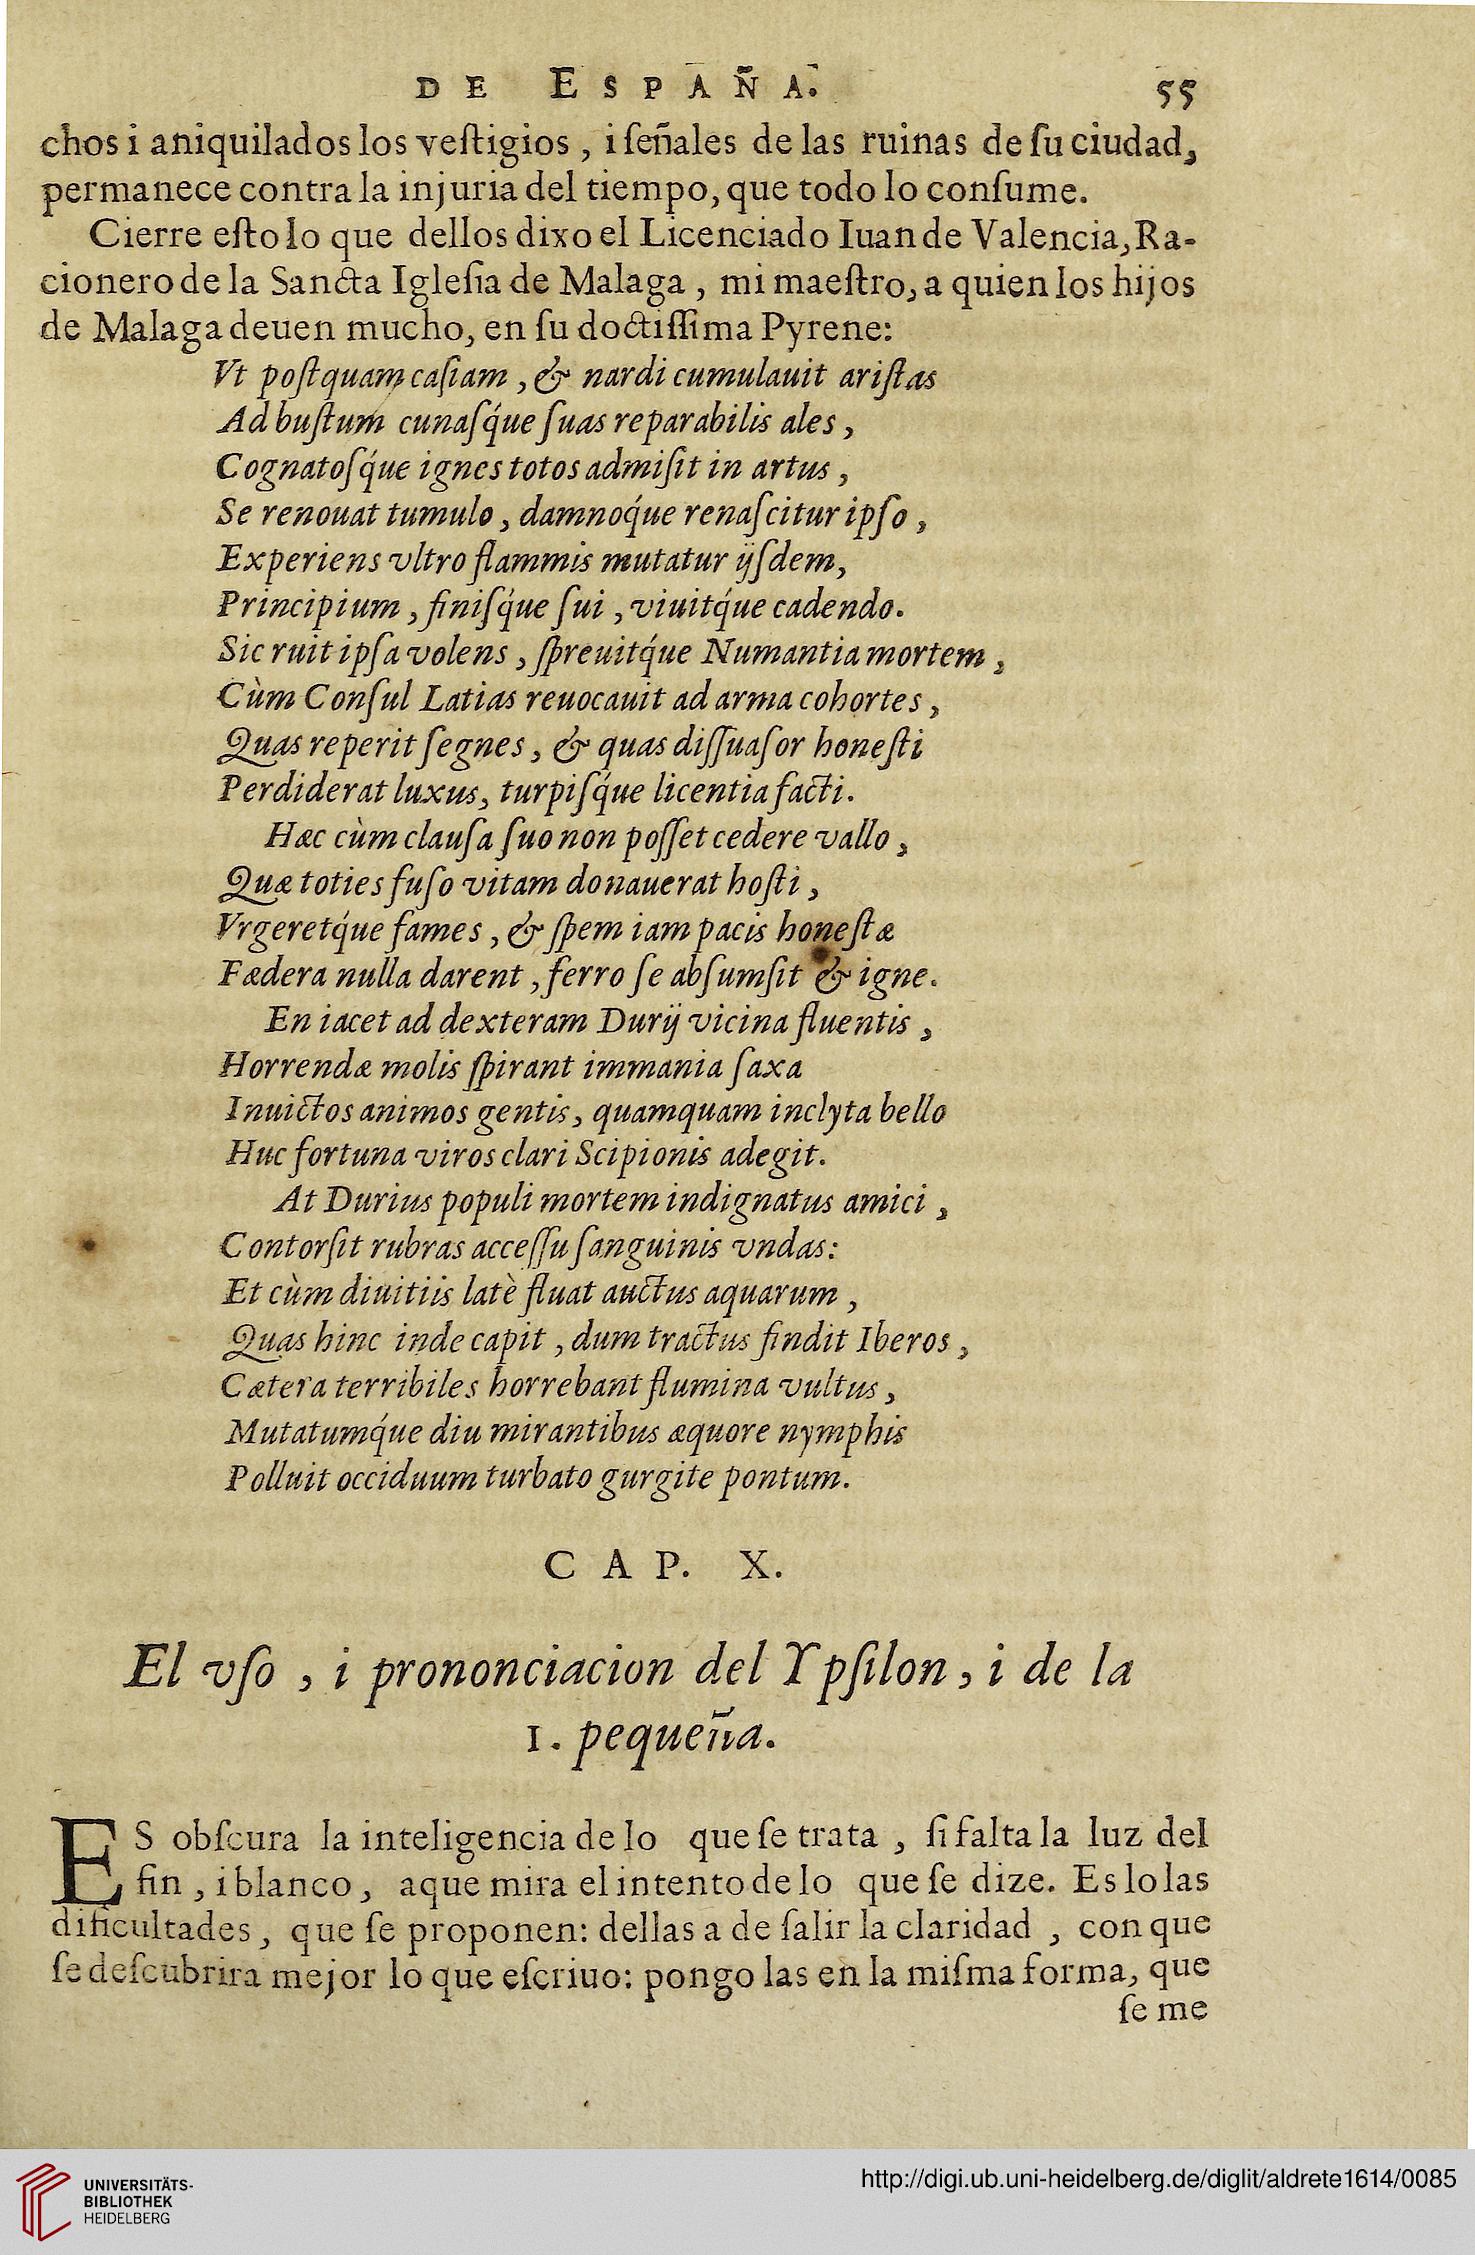 DE ESPAÑA. 55
chos i aniquilados los veſtigios, i ſeñales de las ruinas de ſu ciudad,
permanece contra la injuria del tiempo, que todo lo conſume.
Cierre eſto lo que dellos dixo el Licenciado Iuan de Valencia, Ra-
cionero de la Sancta Igleſia de Malaga, mi maeſtro, a quien los hijos
de Malaga deuen mucho, en ſu doctiſſima Pyrene:
Vt poſtquam caſiam, & nardi cumulauit ariſtas
Ad buſtum cunaſq́ue ſuas reparabilis ales,
Cognatoſq́ue ignes totos admiſit in artus,
Se renouat tumulo, damnoq́ue renaſcitur ipſo,
Experiens vltro flammis mutatur ijſdem,
Principium, finiſq́ue ſui, viuitq́ue cadendo.
Sic ruit ipſa volens, ſpreuitq́ue Numantia mortem,
Cùm Conſul Latias reuocauit ad arma cohortes,
Quas reperit ſegnes, & quas diſſuaſor honeſti
Perdiderat luxus, turpiſq́ue licentia facti.
Hæc cùm clauſa ſuo non poſſet cedere vallo,
Quæ toties fuſo vitam donauerat hoſti,
Vrgeretq́ue fames, & ſpem iam pacis honeſtæ
Fædera nulla darent, ferro ſe abſumſit & igne.
En iacet ad dexteram Durij vicina fluentis,
Horrendæ molis ſpirant immania ſaxa
Inuictos animos gentis, quamquam inclyta bello
Huc fortuna viros clari Scipionis adegit.
At Durius populi mortem indignatus amici,
Contorſit rubras acceſſu ſanguinis vndas:
Et cùm diuitiis latè fluat auctus aquarum,
Quas hinc inde capit, dum tractus findit Iberos,
Cætera terribiles horrebant flumina vultus,
Mutatumq́ue diu mirantibus æquore nymphis
Polluit occiduum turbato gurgite pontum.
CAP. X.
El vſo, i prononciacion del Ypſilon, i de la
I. pequeña.
ES obſcura la inteligencia de lo que ſe trata, ſi falta la luz del
fin, i blanco, aque mira el intento de lo que ſe dize. Es lo las
dificultades, que ſe proponen: dellas a de ſalir la claridad, con que
ſe deſcubrira mejor lo que eſcriuo: pongo las en la miſma forma, que
ſe me
UNIVERSITÄTS-
BIBLIOTHEK
HEIDELBERG
http://digi.ub.uni-heidelberg.de/diglit/aldrete1614/0085